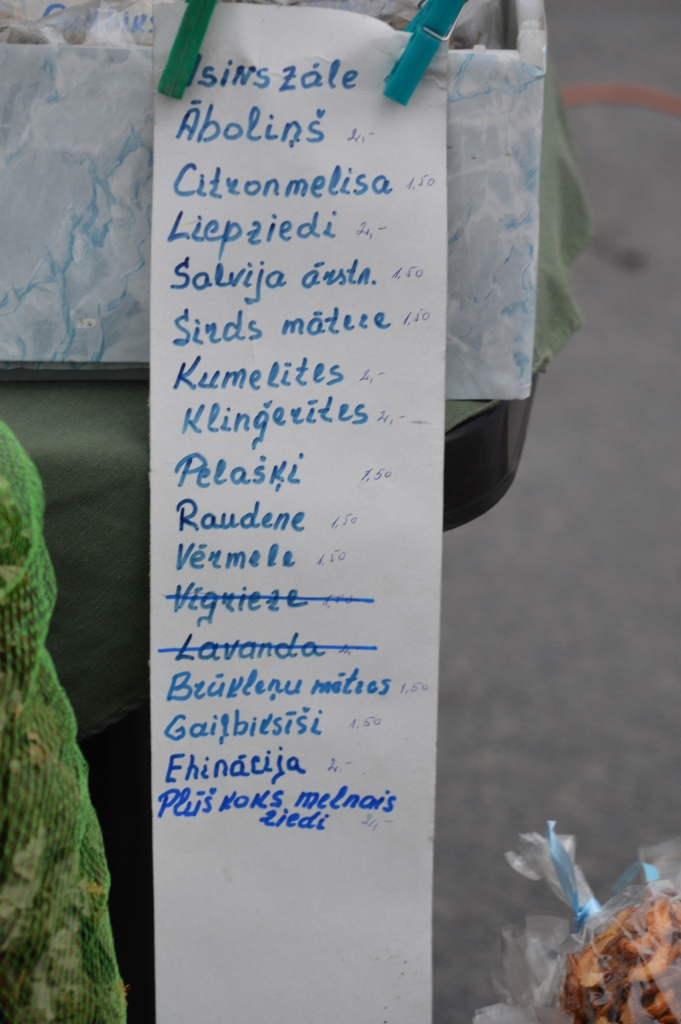 Asinszāle
Āboliņš 2,-
Citronmelisa 1,50
Liepziedi 2,-
Salvija ārstn. 1,50
Sirds mātere 1,50
Kumelītes 2,-
Klinģerītes 2,-
Pelašķi 1,50
Raudene 1,50
Vērmele 1,50
Vīgrieze 1,50
Lavanda 2.
Brūkleņu mētras 1,50
Gaiļbiksīši 1.50
Ehinācija 2.-
Plūškoks melnais
ziedi 2,-